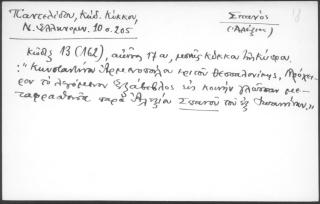 Παντελίδου, Κώδ. Κύκκου,
Ν. Ἑλληνομν. 10 σ. 205
Σπανός
(Ἀλέξιος)
Κώδιξ 13 (162), αἰῶνος 17 α, μονῆς Κύκκου ἐν Κύπρῳ.
: "Κωνσταντίνου Ἁρμενοπούλου κριτοῦ Θεσσαλονίκης, Πρόχει-
ρον τὸ λεγόμενον Ἑξάβιβλος εἰς κοινὴν γλῶσσαν με-
ταφρασθὲν παρὰ Ἀλεξίου Σπανοῦ τοῦ ἐξ Ἰωαννίνων."